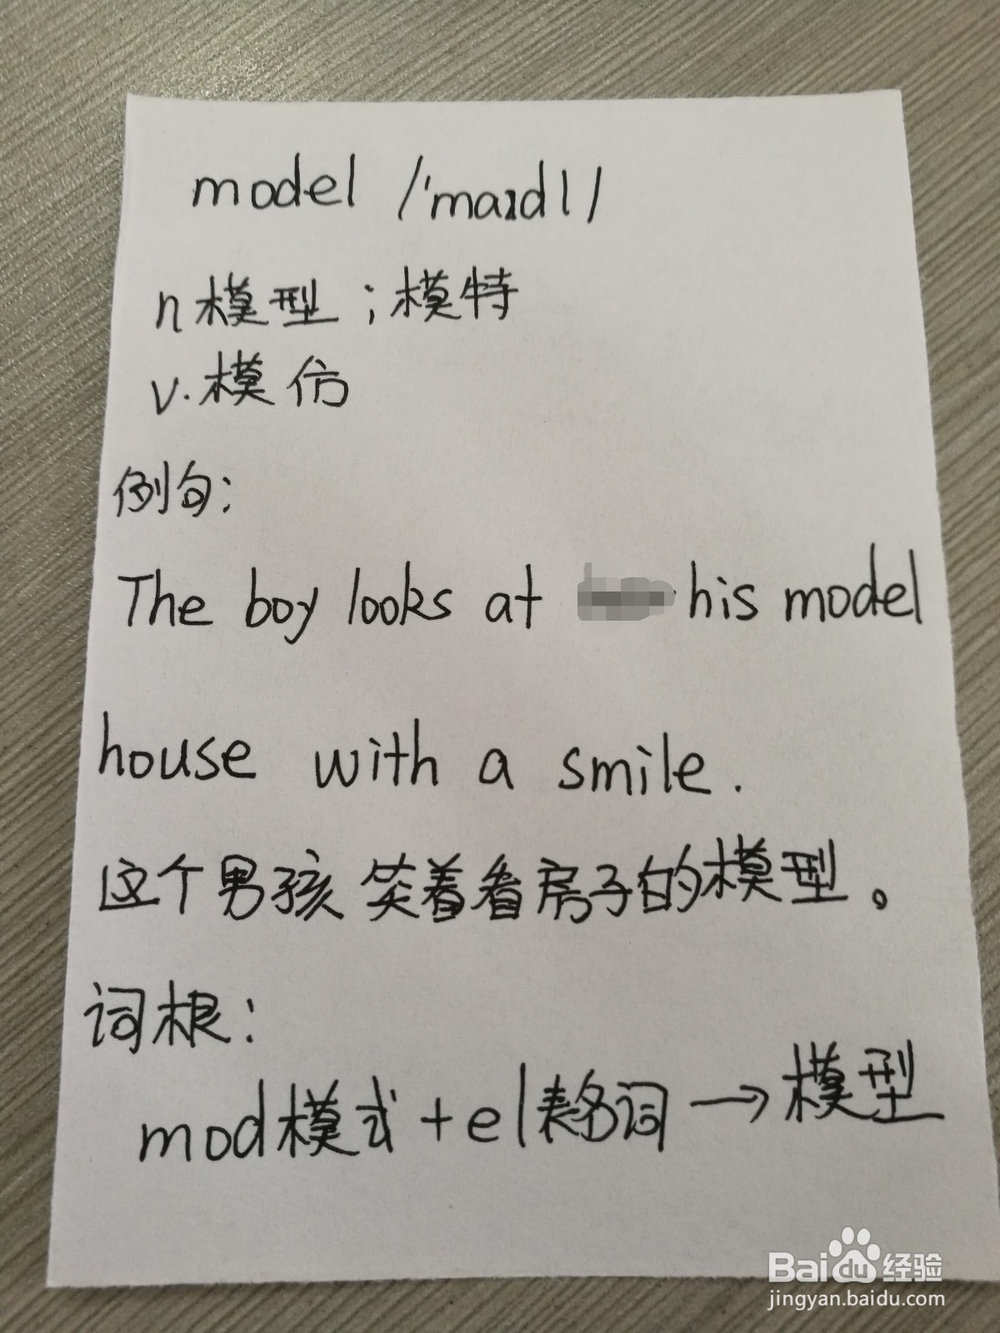 model /'maɪdl/
n模型;模特
v.模仿
例句:
The boy looks at his model
house with a smile.
这个男孩笑着看房子的模型。
词根:
mod模式+el表名词→模型
Baidu经验
jingyan.baidu.com